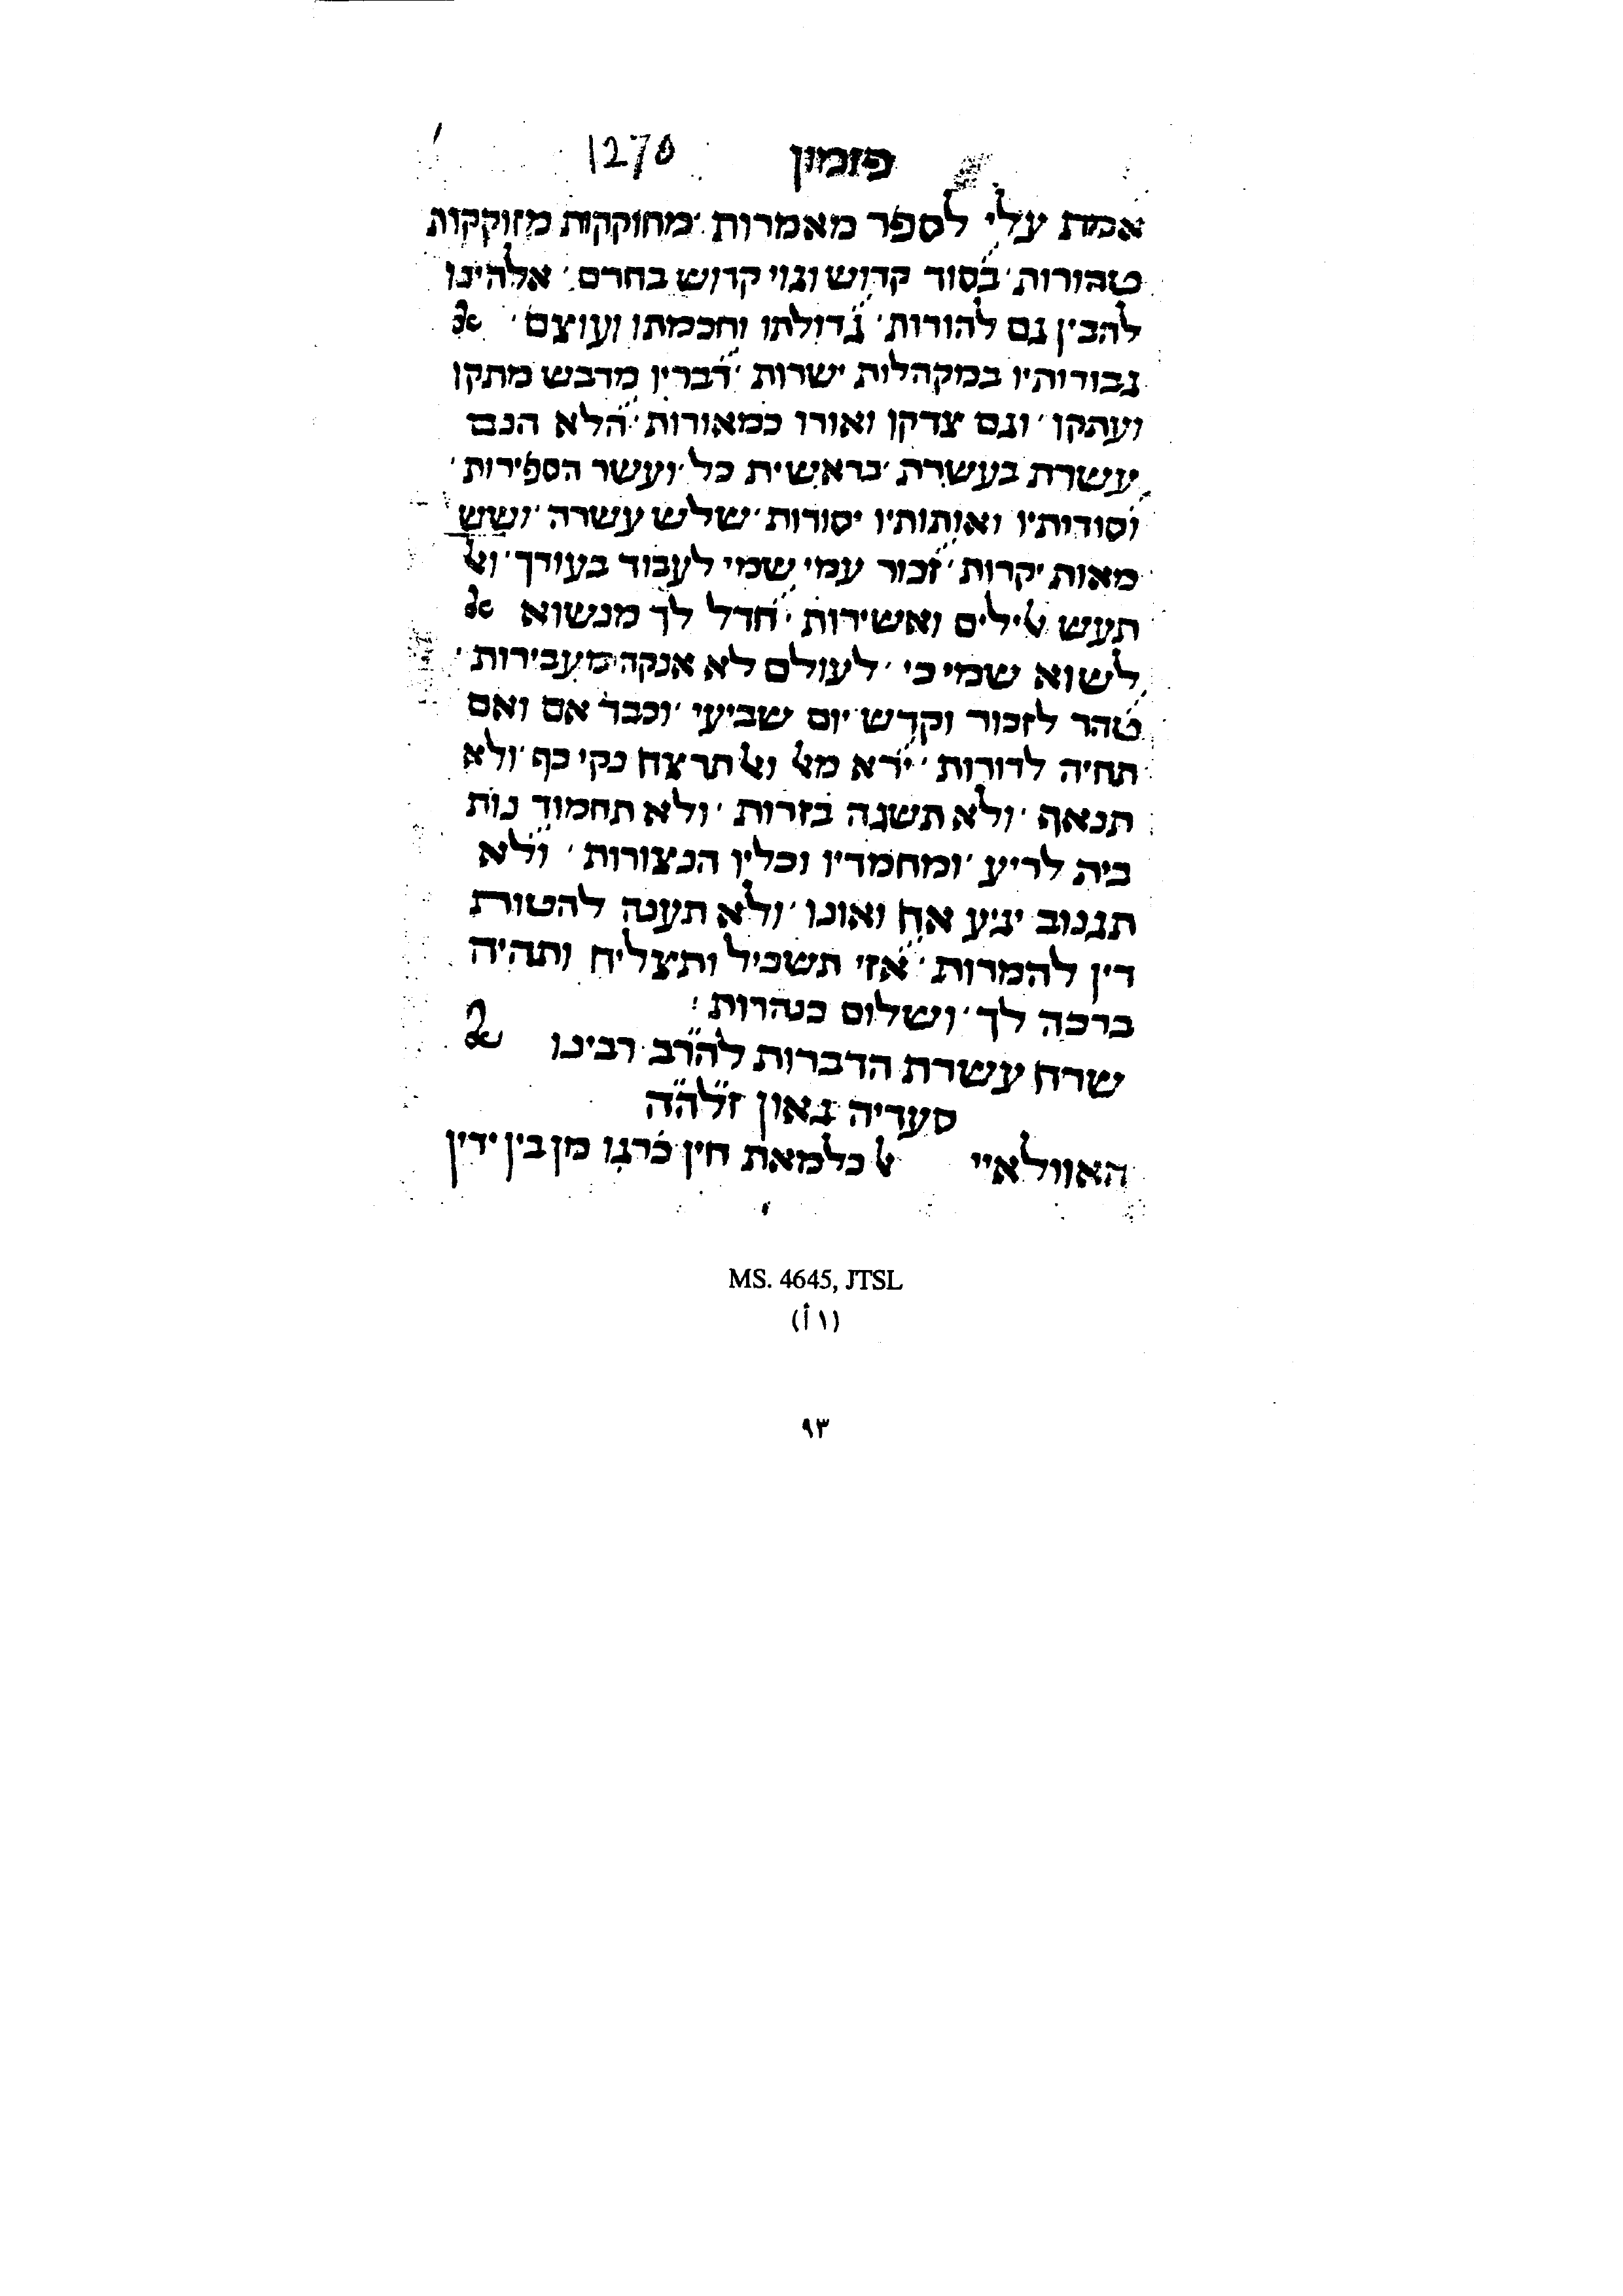 1270 פזמון
אמת עלי לספר מאמרות מחוקקות מזוקקות
טהורות׳ בסוד קדוש וגוי קדוש בחרם׳ אלהינו
להבין גם להורות׳ גדולתו וחכמתו ועוצם׳
גבורותיו במקהלות ישרות׳ דבריו מדבש מתקו
ועתקו׳ וגם צדקו ואורו כמאורות׳ הלא הנם
עשרת בעשרת׳ בראשית כל׳ ועשר הספירות׳
וסודותיו ואותותיו יסודות׳ שלש עשרה׳ ושש
מאות יקרות׳ זכור עמי שמי לעבוד בעודך׳ ואל
תעש אלילים ואשירות׳ חדל לך מנשוא
לשוא שמי כי׳ לעולם לא אנקה מעבירות׳
טהר לזכור וקדש יום שביעי׳ וכבד אם ואם
תחיה לדורות׳ ירא מאל ואל תרצח נקי כף׳ ולא
תנאף׳ ולא תשגה בזרות׳ ולא תחמוד נות
בית לריע׳ ומחמדיו וכליו הנצורות׳ ולא
תגנוב יגיע אח ואונו׳ ולא תענה להטות
דין להמרות׳ אזי תשכיל ותצליח ותהיה
ברכה לך׳ ושלום כנהרות:
שרח עשרת הדברות להר״ב רבינו
סעדיה גאון ז״ל״ה״ה
האוולאיי אלכלמאת חין כרגו מן בין ידין
MS. 4645, JTSL
(١ أ)
٩٣